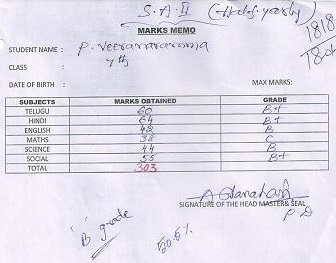 S.A-II (Half yearly)
1818
MARKS MEMO
STUDENT NAME : P. Veeranaramma
CLASS :
DATE OF BIRTH : MAX MARKS:
SUBJECTS MARKS OBTAINED GRADE
TELUGU 60 B+
HINDI 64 B+
ENGLISH 42 B
MATHS 38 C
SCIENCE 44 B
SOCIAL 55 B+
TOTAL 303
SIGNATURE OF THE HEAD MASTER& SEAL
"B" grade
50.5%